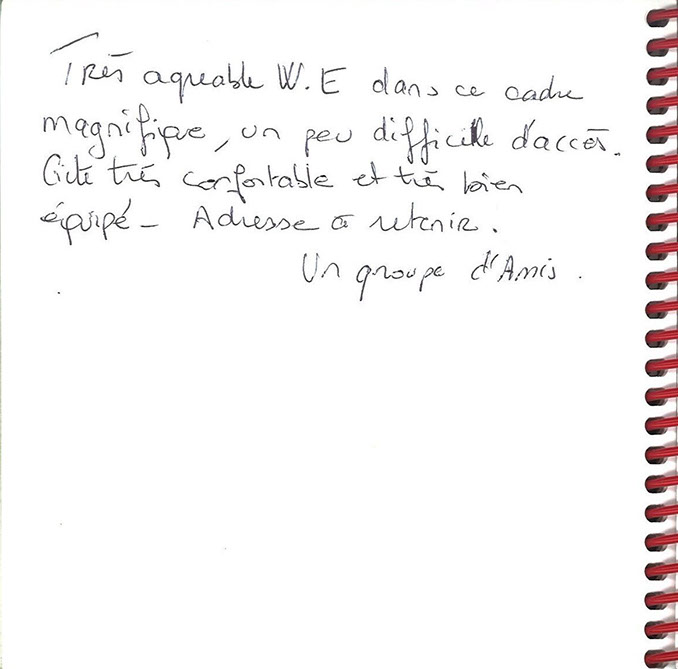 Très agreable W.E dans ce cadre
magnifique, un peu difficile d'accès.
Gite très confortable et très bien
équipé - Adresse à retenir.
Un groupe d'Amis.